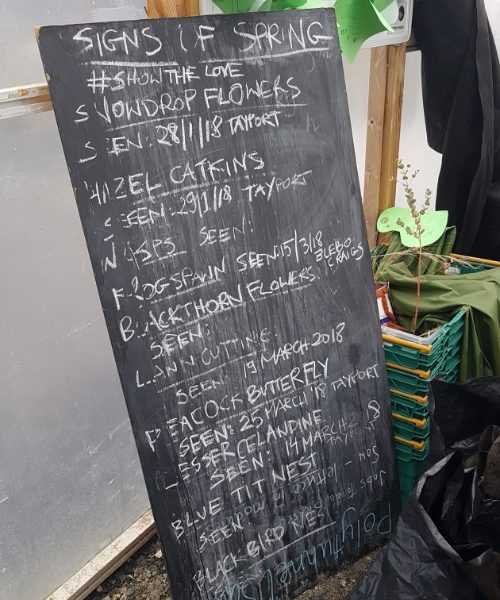 SIGNS OF SPRING
#SHOW THE LOVE
SNOWDROP FLOWERS
SEEN: 28/1/18 TAYPORT
HAZEL CATKINS
SEEN: 29/1/18 TAYPORT
WASPS SEEN:
FROGSPAWN SEEN: 15/3/18 BLEBO CRAIGS
BLACKTHORN FLOWERS:
SEEN:
LAWN CUTTING:
SEEN 9 MARCH 2018
PEACOCK BUTTERFLY
SEEN: 25 MARCH '18 TAYPORT
LESSER CELANDINE
SEEN: 14 MARCH
BLUE TIT NEST
SEEN:
BLACKBIRD NEST
Jobs to do
Sow - lettuce
Polytunnel